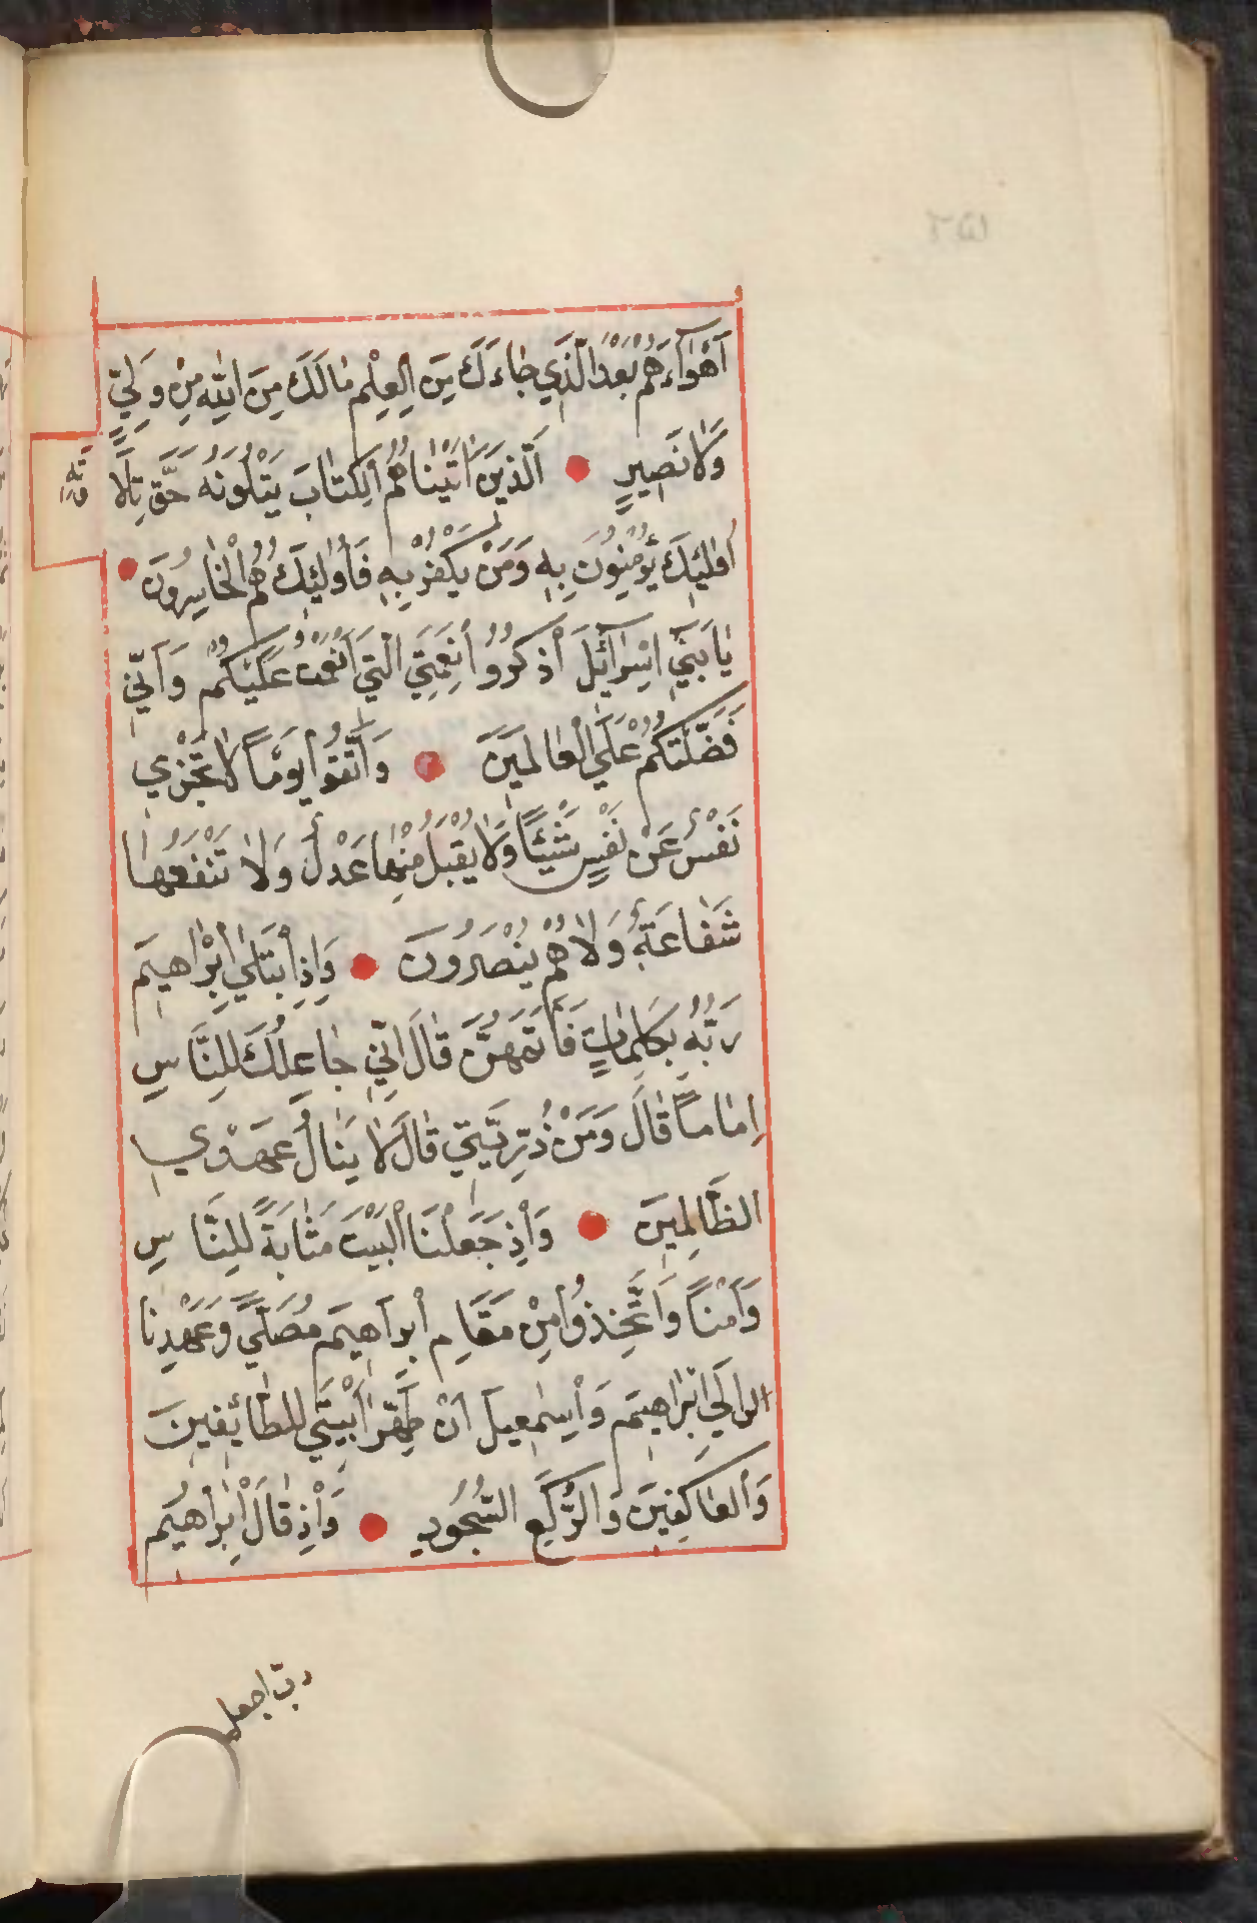 أَهْوَآءَهُمْ بَعْدَ الَّذِي جَاءَكَ مِنَ الْعِلْمِ مَالَكَ مِنَ اللهِ مِنْ وَلِيٍّ
وَلَا نَصِيرٍ ● اَلَّذِينَ اٰتَيْنَاهُمُ الْكِتَابَ يَتْلُونَهُ حَقَّ تِلَا
وَتِهِ
اُولٰئِكَ يُؤْمِنُونَ بِهِ وَمَنْ يَكْفُرْ بِهِ فَأُولٰئِكَ هُمُ الْخَاسِرُونَ ●
يَابَنِي اِسْرَآئِلَ اذْكُرُوا نِعْمَتِيَ الَّتِي أَنْعَمْتُ عَلَيْكُمْ وَأَنِّي
فَضَّلْتُكُمْ عَلَى الْعَالَمِينَ ● وَاتَّقُوا يَوْمًا لَا تَجْزِي
نَفْسٌ عَنْ نَفْسٍ شَيْئًا وَلَا يُقْبَلُ مِنْهَا عَدْلٌ وَلَا تَنْفَعُهَا
شَفَاعَةٌ وَلَا هُمْ يُنْصَرُونَ ● وَإِذِ ابْتَلَى اِبْرَاهِيمَ
رَبُّهُ بِكَلِمَاتٍ فَأَتَمَّهُنَّ قَالَ اِنِّي جَاعِلُكَ لِلنَّاسِ
اِمَامًا قَالَ وَمَنْ ذُرِّيَّتِي قَالَ لَا يَنَالُ عَهْدِي
الظَّالِمِينَ ● وَإِذْ جَعَلْنَا الْبَيْتَ مَثَابَةً لِلنَّاسِ
وَأَمْنًا وَاتَّخِذُوا مِنْ مَقَامِ اِبْرَاهِيمَ مُصَلًّى وَعَهِدْنَا
اِلَى اِبْرَاهِيمَ وَاِسْمٰعِيلَ اَنْ طَهِّرَا بَيْتِيَ لِلطَّائِفِينَ
وَالْعَاكِفِينَ وَالرُّكَّعِ السُّجُودِ ● وَإِذْ قَالَ اِبْرَاهِيمُ
رب اجعل